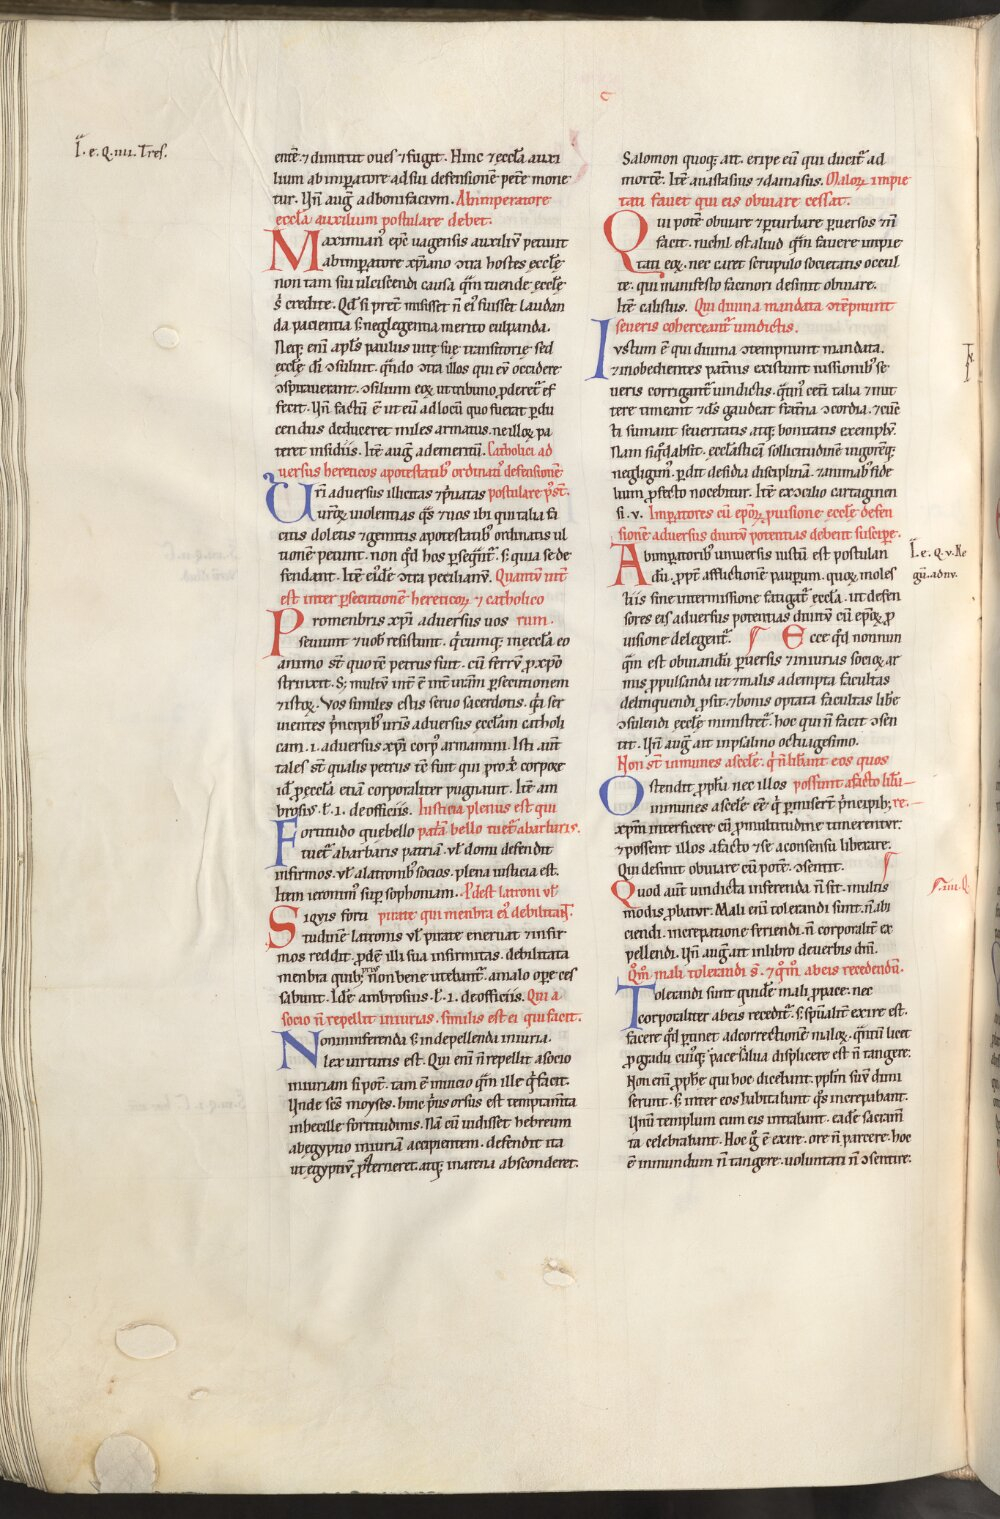 I. e. Q. iiii. Tres.
entē. ⁊ dimittit oues ⁊ fugit. Hinc ⁊ eccl̄a auxi
lium ab imp̄atore ad sui defensionē petē mone
tur. Un̄ auḡ ad bonifacium. Ab imperatore
eccl̄a auxilium postulare debet.
Maximian' ep̄c uagensis auxiliū petiuit
ab imp̄atore xp̄iano ↄtra hostes eccl̄ę
non tam sui ulciscendi causa q̄m tuendę eccl̄ę
s' creditę. Qđ si p̄t̄misisset n̄ ei' fuisset laudan
da pacientia s; neglegentia merito culpanda.
Neq; enī apl̄s paulus uitę suę transitorię sed
eccl̄ę d̄i ↄsuluit. q̄ndo ↄtra illos qui eū occidere
ↄspirauerant. ↄsilium eoꝝ ut tribuno ꝓderet' ef
fecit. Un̄ factū ē ut eū ad locū quo fuerat ꝑdu
cendus deduceret miles armatus. ne illoꝝ pa
teret' insidiis. Itē auḡ ad emeritū. Catholici ad
uersus hereticos a potestatib' ordinatis defensionē
Uri aduersus illicitas ⁊ p̄uatas postulare p̄st̄.
uroꝝ uiolentias q̄s ⁊ uos ibi qui talia fa
citis doletis ⁊ gemitis a potestatib' ordinatis ul
tionē petunt. non q̄d hos ꝑseq̄nt'. s; qua se de
fendant. Itē eidē ↄtra petilianū. Quantū int̄
est inter ꝑsecutionē hereticoꝝ ⁊ catholico
Pro menbris xp̄i aduersus uos rum.
seuiunt ⁊ uob' resistunt. q̄cumq; in eccl̄a eo
animo st̄ quo tē petrus fuit. cū ferrū ꝓ xp̄o
strinxit. S; multū int̄ ē int̄ uram ꝑsecutionem
⁊ istoꝝ. Vos similes estis seruo sacerdotis. q̄a ser
uientes p̄ncipib' uris aduersus eccl̄am catholi
cam. i. aduersus xp̄i corp' armamini. Isti aut̄
tales st̄ qualis petrus tē fuit qui pro xp̄i corpore
id ꝑ eccl̄a etiā corporaliter pugnauit. Itē am
brosius. l'. i. de officiis. Iusticia plenius est qui
Fortitudo que bello patriā bello tuet' a barbaris.
tuet' a barbaris patriā. ul' domi defendit
infirmos. ul' a latronib' socios. plena iusticia est.
Item ieronim' sup̄ sophoniam. P̄dest latroni ul'
Siquis forti piratę qui menbra ei' debilitat.
tudinē latronis ul' piratę eneruat ⁊ infir
mos reddit. ꝓdē illi sua infirmitas. debilitata
menbra quib; prius non bene utebant'. a malo oꝑe ces
sabunt. Idē ambrosius. l'. i. de officiis. Qui a
socio n̄ repellit iniurias. similis est ei qui facit.
Non inferenda s; in depellenda iniuria.
lex uirtutis est. Qui enī n̄ repellit a socio
iniuriam si potest. tam ē in uicio q̄m ille q̄ facit.
Unde sc̄s moyses. hinc p̄us orsus est temptam̄ta
inbellice fortitudinis. Nā cū uidisset hebreum
ab egyptio iniuriā accipientem. defendit ita
ut egyptiū ꝓsterneret. atq; in arena absconderet.
Salomon quoq; ait. eripe eū qui ducit' ad
mortē. Itē anastasius ⁊ damasus. Maloꝝ impie
tati fauet qui eis obuiare cessat.
Qui potē obuiare ⁊ ꝑturbare ꝑuersos n̄
facit. nichil est aliud q̄m fauere impie
tati eoꝝ. nec caret scrupulo societatis occul
tę. qui manifesto facinori desinit obuiare.
Itē calistus. Qui diuina mandata ↄtēpnunt
seueris coherceant' uindictis.
Iustum ē qui diuina ↄtempnunt mandata.
⁊ inobedientes paternis existunt iussionib' se
ueris corrigant' uindictis. q̄tin' cet̄i talia ⁊ mit
tere timeant ⁊ om̄s gaudeat fraterna ↄcordia. ⁊ cūc
ti sumant seueritatis atq; bonitatis exemplū.
Nam si q̄d absit. eccl̄asticam sollicitudinē uigorēq;
negligim'. ꝑdit desidia disciplinā. ⁊ animab' fide
lium ꝓfecto nocebitur. Itē ex ↄcilio cartaginen
si. v. Imp̄atores cū ep̄oꝝ ꝓuisione eccl̄ę defen
sionē aduersus diuitū potentias debent suscipe.
Ab imp̄atorib' uniuersis uisū est postulan
dū. ꝓpt̄ afflictionē pauꝑum. quoꝝ moles
tiis sine intermissione fatigat' eccl̄a. ut defen
sores eis aduersus potentias diuitū cū ep̄oꝝ ꝓ
uisione delegent'. Ecce q̄d nonnun
q̄m est obuiandū ꝑuersis ⁊ iniurias socioꝝ ar
mis ꝓpulsandi ut ⁊ malis adempta facultas
delinquendi ꝓsit. ⁊ bonis optata facultas libe
ↄsulendi eccl̄ę ministret'. hoc qui n̄ facit ↄsen
tit. Un̄ auḡ ait in psalmo octuagesimo.
Non st̄ inmunes a sceł'e. q̄ n̄ lib̄ant eos quos
Ostendit ꝓph̄a nec illos possunt a facto lib̄i
immunes a scele eē q̄ ꝑmiser̄t p̄ncipib; re.
xp̄m interficere cū ꝓ multitudine timerentur.
⁊ possent illos a facto ⁊ se a consensu liberare.
Qui desinit obuiare cū potē. ↄsentit.
Quod aut̄ uindicta inferenda n̄ sit. multis
modis ꝓbatur. Mali enī tolerandi sunt. n̄ abi
ciendi. increpatione feriendi. n̄ corporalit' ex
pellendi. Un̄ auḡ ait in libro de uerbis dn̄i.
Q̄m mali tolerandi s̄. ⁊ q̄m ab eis recedendū.
Tolerandi sunt quidē mali ꝓ pace. nec
corporaliter ab eis recedit'. s; sp̄ualit' exire est.
facere q̄d ꝑtinet ad correctionē maloꝝ. q̄ntū licet
ꝓ gradu cuiq; pace salua displicere est n̄ tangere.
Non enī ꝓph̄ę qui hoc dicebant. pp̄lm suū dimi
serunt. s; inter eos habitabant q̄s increpabant.
Unū templum cum eis intrabant. eadē sacram̄
ta celebrabant. Hoc ḡ ē exire. ore n̄ parcere. hoc
ē inmundum n̄ tangere. uoluntati n̄ ↄsentire.
I. e. Q. v. Re
gū. adnv.
iiii. Q.